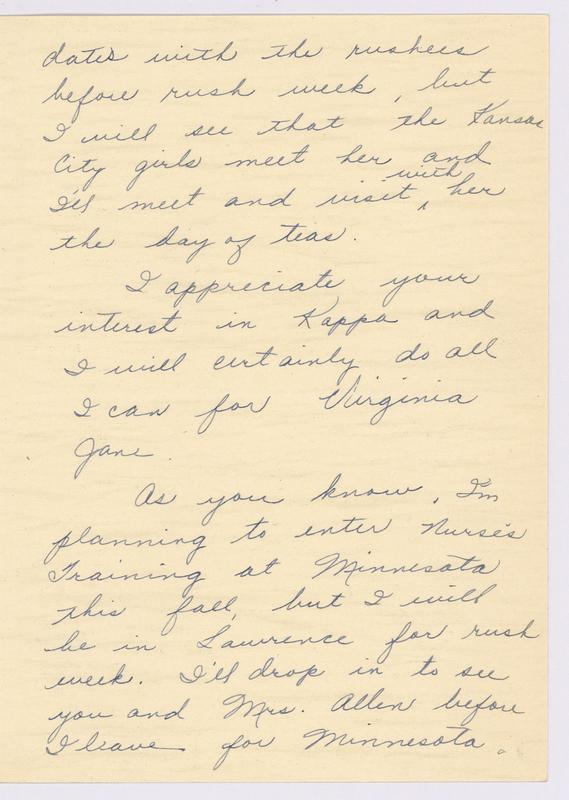 dates with the rushees
before rush week, but
I will see that the Kansas
City girls meet her and
I'll meet and visit ‸with her
the day of teas.
I appreciate your
interest in Kappa and
I will certainly do all
I can for Virginia
Jane.
As you know, I'm
planning to enter Nurse's
Training at Minnesota
this fall, but I will
be in Lawrence for rush
week. I'll drop in to see
you and Mrs. Allen before
I leave for Minnesota.